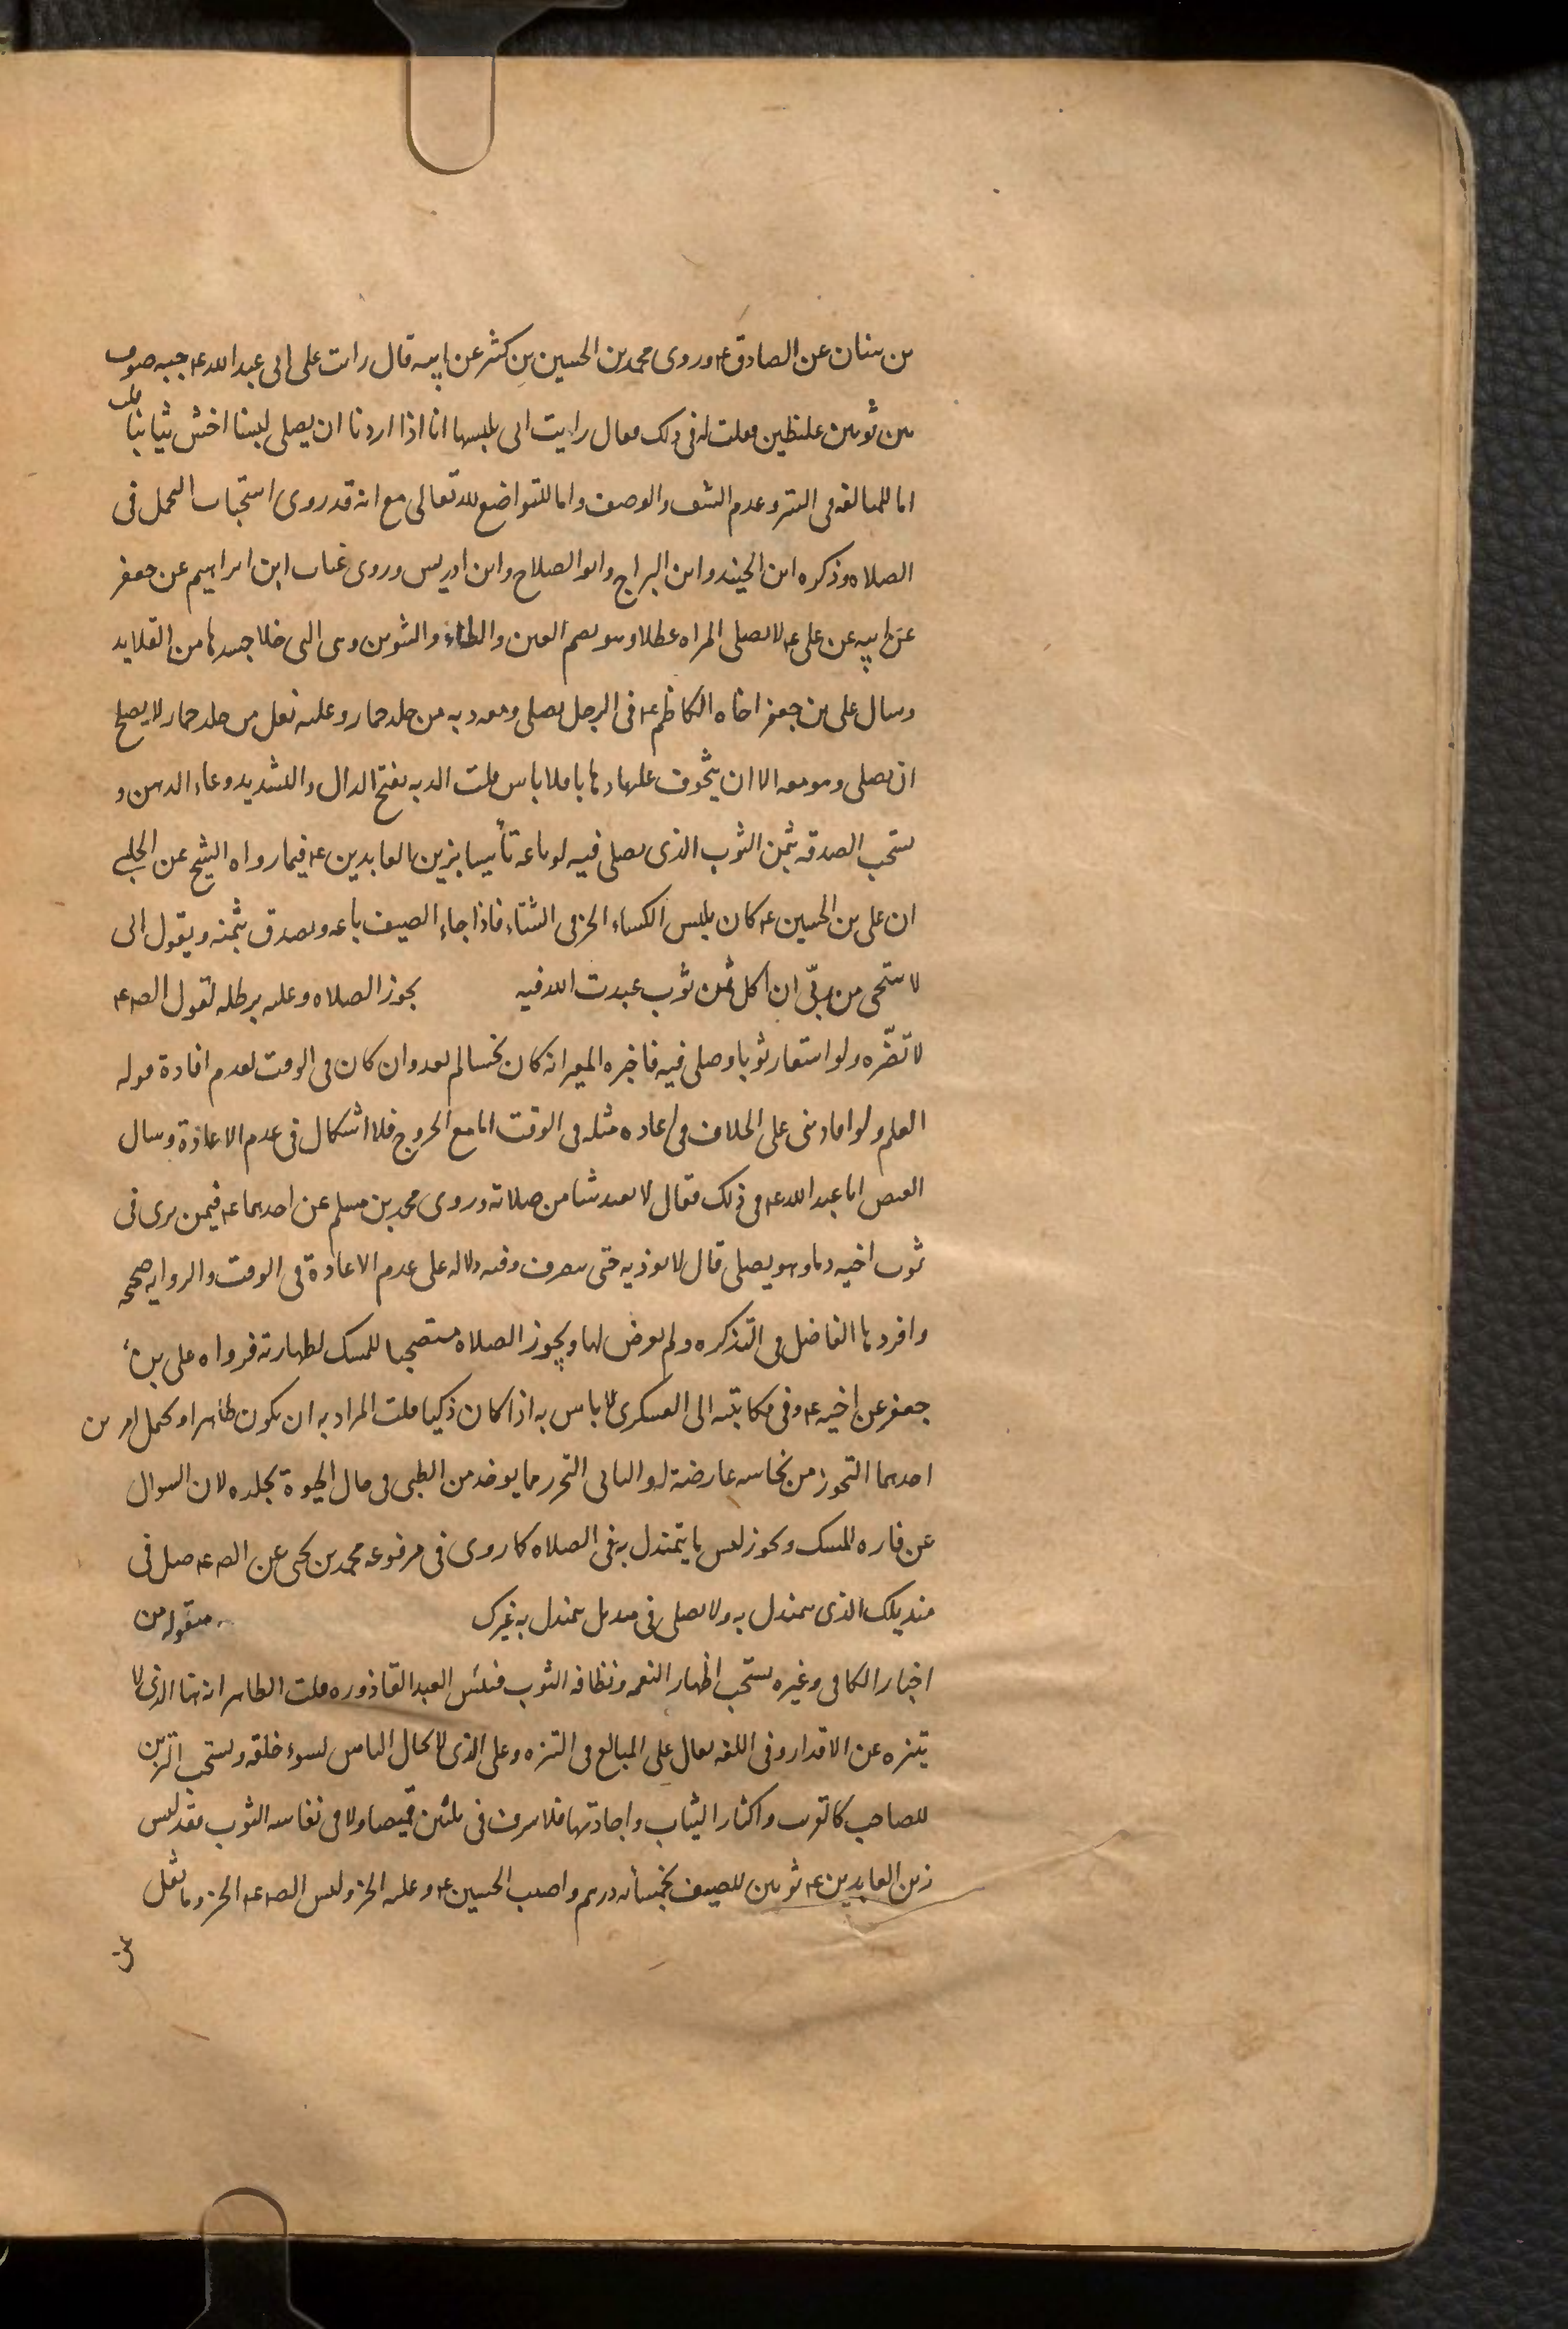 بن سنان عن الصادق ع وروى محمد بن الحسين بن كثير عن ابيه قال رايت على ابي عبد الله ع جبه صوف
بين ثوبين غليظين فقلت له في ذلك فقال رايت ابي يلبسها انا اذا اردنا ان يصلى لبسنا اخشن ثيابنا قلت
اما للمبالغه في الستر وعدم الشف والوصف واما للتواضع لله تعالى مع انه قد روى استحباب التجمل في
الصلاه وذكره ابن الجنيد وابن البراج وابو الصلاح وابن ادريس وروى غياث ابن ابراهيم عن جعفر
عن ابيه عن على ع لا يصلى المراه عطلا وهو بضم العين والطاء والتنوين وهي التي خلا جيدها من القلايد
وسال على بن جعفر اخاه الكاظم ع في الرجل يصلى ومعه دبه من جلد حمار وعليه نعل من جلد حمار لا يصلح
ان يصلى وهو معه الا ان يتخوف عليها ذهابا فلا باس قلت الدبه بفتح الدال والتشديد وعاء الدهن و
يستحب الصدقه بثمن الثوب الذى يصلى فيه لو باعه تأسيا بزين العابدين ع فيما رواه الشيخ عن الحلبي
ان على بن الحسين ع كان يلبس الكساء الخز في الشتاء فاذا جاء الصيف باعه وتصدق بثمنه ويقول انى
لاستحى من ربّي ان اكل ثمن ثوب عبدت الله فيه يجوز الصلاه وعليه برطله لقول الصه ع
لا تضّره ولو استعار ثوبا وصلى فيه فاخبره المعير انه كان نجسا لم يعد وان كان في الوقت لعدم افادة قوله
العلم ولو افاد بنى على الخلاف في اعاده مثله في الوقت اما مع الخروج فلا اشكال في عدم الاعادة وسال
العيص ابا عبد الله ع في ذلك فقال لا يعيد شيا من صلاته وروى محمد بن مسلم عن احدهما ع فيمن يرى في
ثوب اخيه دما وهو يصلى قال لا يوذيه حتى ينصرف وفيه دلاله على عدم الاعادة في الوقت والروايه صحيحه
وافردها الفاضل في التذكره ولم يعرض لها ويجوز الصلاه مستصحبا للمسك لطهارته فرواه على بن
جعفر عن اخيه ع وفي مكاتبته الى العسكرى لا باس به اذا كان ذكيا قلت المراد به ان يكون طاهرا ويحمل امرين
احدهما التحرز من نجاسه عارضة له والثاني التحرز مما يوخذ من الظبي في حال الحيوة بجلده لان السوال
عن فاره المسك ويجوز لبس ما يتمندل به في الصلاه كما روى في مرفوعه محمد بن يحيى عن الصه ع صل في
منديلك الذى تتمندل به ولا يصلى في منديل يتمندل به غيرك منقوله من
اخبار الكافي وغيره يستحب اظهار النعمه ونظافه الثوب فبئس العبد القاذوره قلت الظاهر انه هنا الذى لا
يتنزه عن الاقذار وفي اللغه يقال على المبالغ في التنزه وعلى الذى لا يخال الناس لسوء خلقه ويستحب التزين
للصاحب كالغريب واكثار الثياب واجادتها فلا سرف في ثلثين قميصا ولا في نفاسه الثوب فقد لبس
زين العابدين ع ثوبين للصيف بخمسمائه درهم واصيب الحسين ع وعليه الخز ولبس الصه ع الخز وما نقل
عن